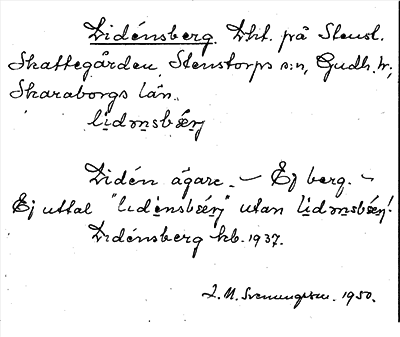 Lidénsberg. Lht. på Stensl.
Skattegården, Stenstorps s:n, Gudh. h.,
Skaraborgs län.
Lidén ägare. — Ej berg. —
Ej uttal "lidénsbærj" utan lidənsbærj!
Lidénsberg kb. 1937.
1950.